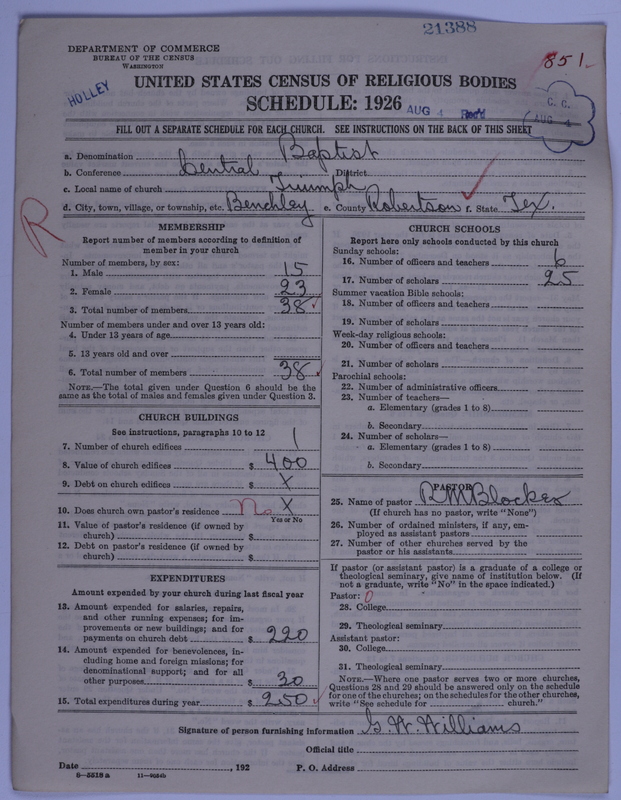 21388
DEPARTMENT OF COMMERCE
BUREAU OF THE CENSUS
WASHINGTON
851
HOLLEY
UNITED STATES CENSUS OF RELIGIOUS BODIES
SCHEDULE: 1926
AUG 4 Rec'd
C. C.
AUG 4
FILL OUT A SEPARATE SCHEDULE FOR EACH CHURCH. SEE INSTRUCTIONS ON THE BACK OF THIS SHEET
a. Denomination Baptist
b. Conference Central District
c. Local name of church Triumph
d. City, town, village, or township, etc. Benchley e. County Robertson f. State Tex.
R
MEMBERSHIP
Report number of members according to definition of
member in your church
Number of members, by sex:
1. Male 15
2. Female 23
3. Total number of members 38
Number of members under and over 13 years old:
4. Under 13 years of age
5. 13 years old and over
6. Total number of members 38
NOTE.—The total given under Question 6 should be the
same as the total of males and females given under Question 3.
CHURCH BUILDINGS
See instructions, paragraphs 10 to 12
7. Number of church edifices 1
8. Value of church edifices $ 400
9. Debt on church edifices $ X
10. Does church own pastor's residence No X
Yes or No
11. Value of pastor's residence (if owned by
church) $
12. Debt on pastor's residence (if owned by
church) $
EXPENDITURES
Amount expended by your church during last fiscal year
13. Amount expended for salaries, repairs,
and other running expenses; for im-
provements or new buildings; and for
payments on church debt $ 220
14. Amount expended for benevolences, in-
cluding home and foreign missions; for
denominational support; and for all
other purposes $ 30
15. Total expenditures during year $ 250
CHURCH SCHOOLS
Report here only schools conducted by this church
Sunday schools:
16. Number of officers and teachers 6
17. Number of scholars 25
Summer vacation Bible schools:
18. Number of officers and teachers
19. Number of scholars
Week-day religious schools:
20. Number of officers and teachers
21. Number of scholars
Parochial schools:
22. Number of administrative officers
23. Number of teachers—
a. Elementary (grades 1 to 8)
b. Secondary
24. Number of scholars—
a. Elementary (grades 1 to 8)
b. Secondary
PASTOR
25. Name of pastor R M Blocker
(If church has no pastor, write "None")
26. Number of ordained ministers, if any, em-
ployed as assistant pastors
27. Number of other churches served by the
pastor or his assistants
If pastor (or assistant pastor) is a graduate of a college or
theological seminary, give name of institution below. (If
not a graduate, write "No" in the space indicated.)
Pastor: 0
28. College
29. Theological seminary
Assistant pastor:
30. College
31. Theological seminary
NOTE.—Where one pastor serves two or more churches,
Questions 28 and 29 should be answered only on the schedule
for one of the churches; on the schedules for the other churches,
write "See schedule for church."
Signature of person furnishing information G. W. Williams
Official title
Date , 192 P. O. Address
8—5518 a 11—9564b